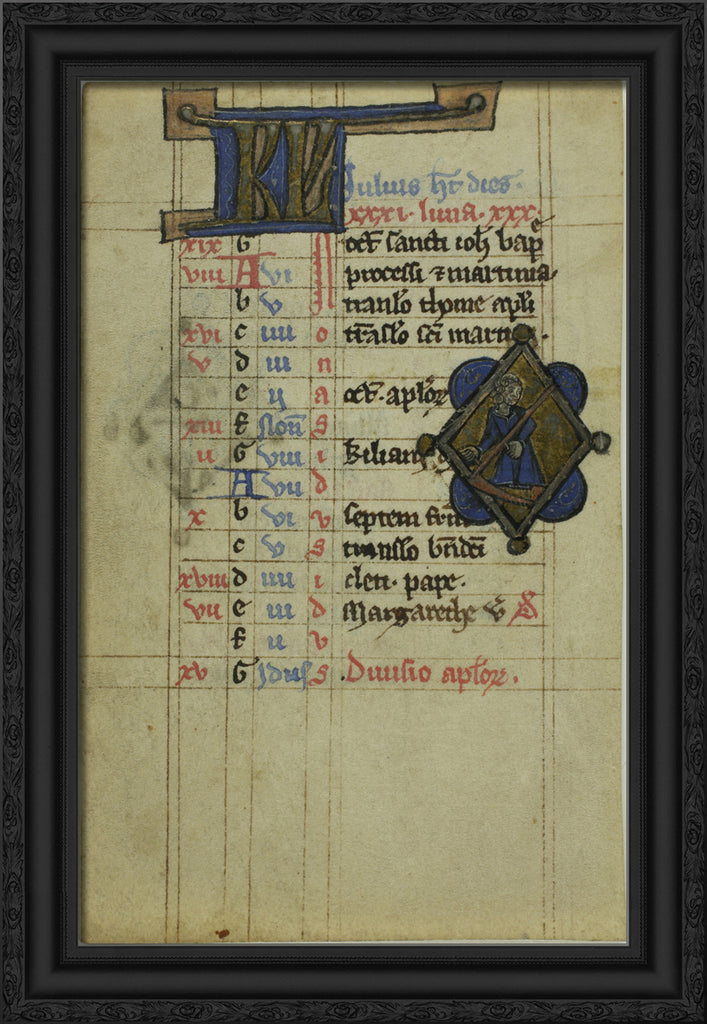 KL
Iulius ht dies.
xxxi. luna. xxx.
xix G N oct sancti ioh bap
viii A vi processi ⁊ martinia
b v tranſlo thome apli
xvi c iiii o trāſlo sci marti
v d iii n
e ii a oct. aplor
xiii f Non S
ii G viii i kilian
A vii d
x b vi v septem frm
c v S tranſlo bndci
xviii d iiii i cleti. pape.
vii e iii d Margarethe v
f ii v
xv G Idus S .Diuisio aplor.